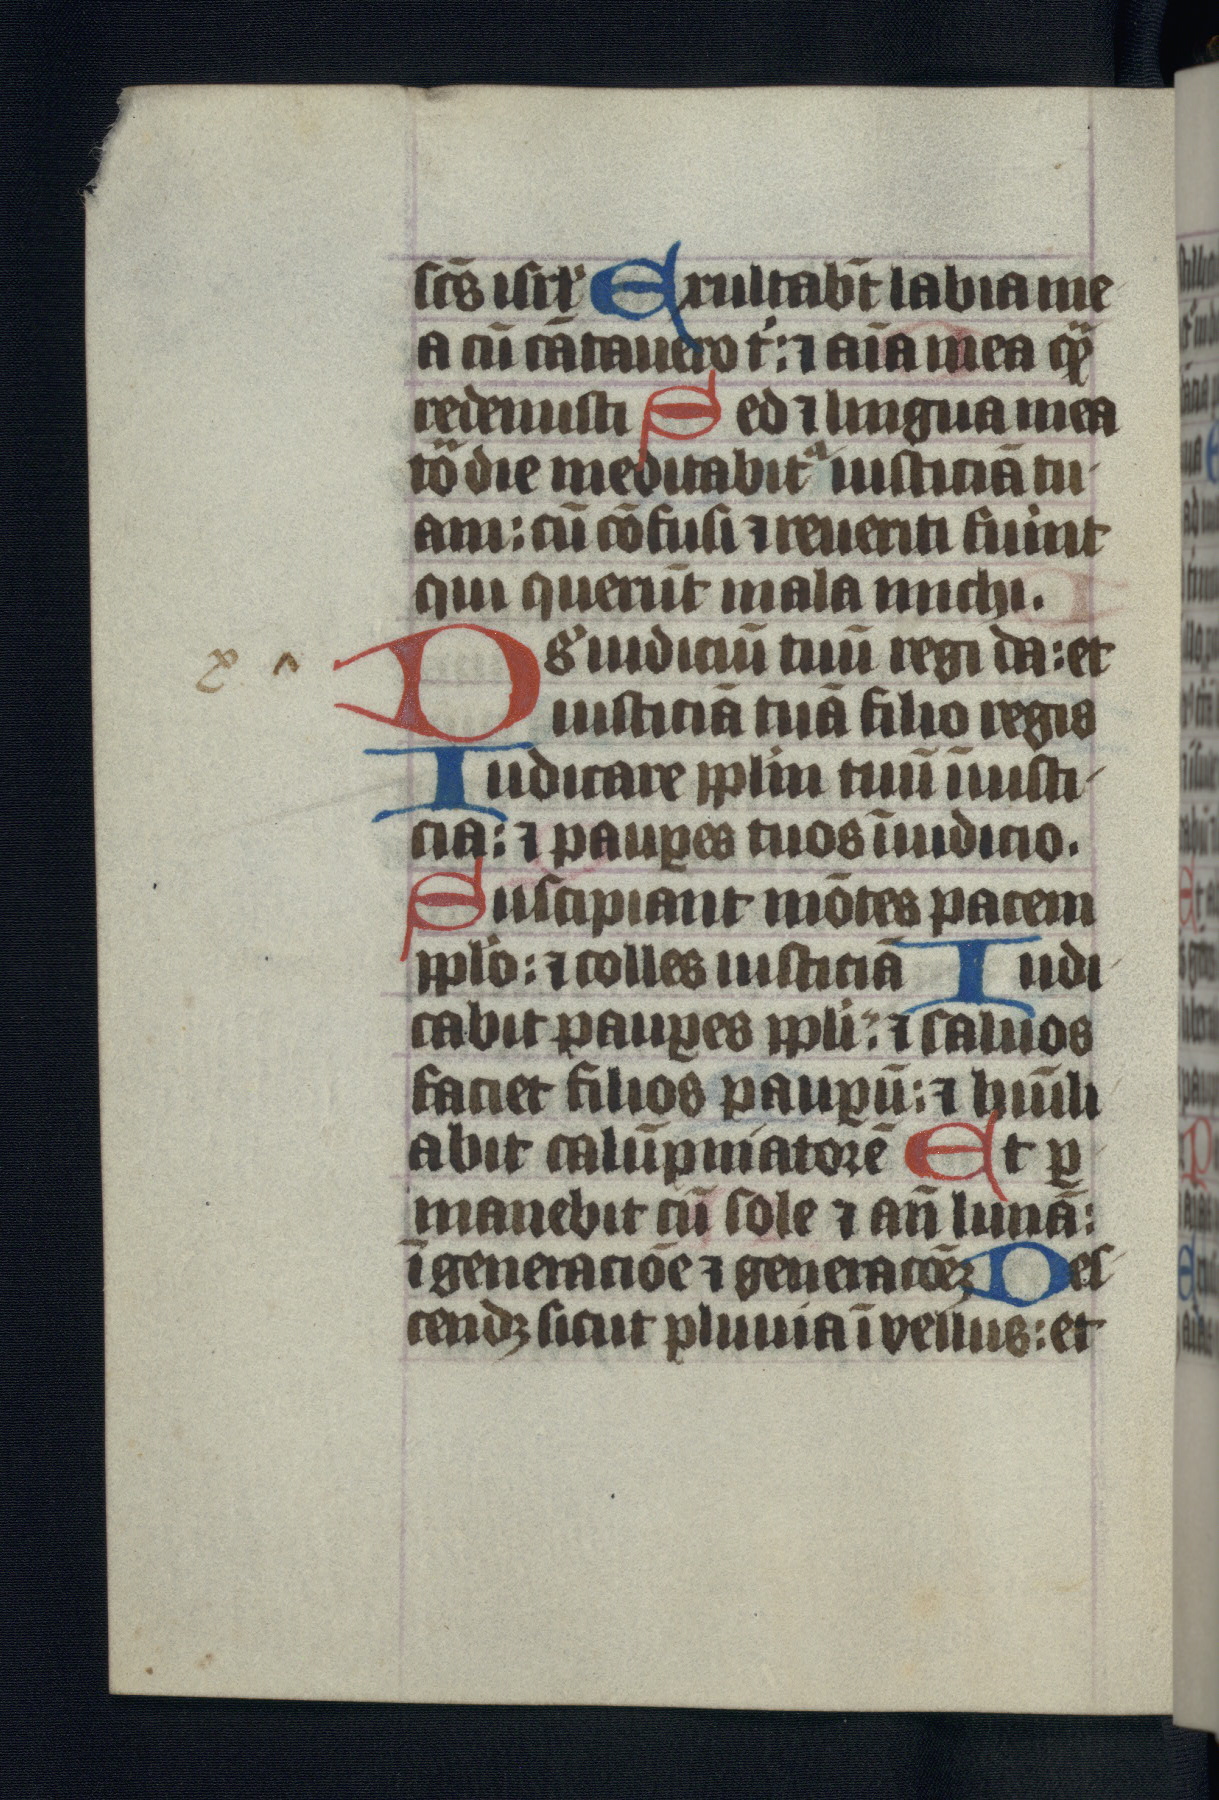 scs̄ isrl̄ Exultabt̄ labia me
a cū cātauero t': ⁊ aīa mea qͣ̄
redemisti Sed ⁊ lingua mea
tō die meditabitᷓ iusticiā tu
am: cū cōfusi ⁊ reueriti fuīnt
qui querūt mala michi.
Ds' iudiciū tuū regi da: et
iusticiā tuā filio regis
Iudicare pplm̄ tuū ī iusti
cia: ⁊ paupes tuos ī iudicio.
Suscipiant mōtes pacem
pplo̅: ⁊ colles iusticiā Iudi
cabit paupes ppli̅: ⁊ saluos
faciet filios paupū: ⁊ hūīli
abit calūpniatorē Et ꝑ
manebit cū sole ⁊ an̄ lunā:
ī generaciōe ⁊ generacōeꝫ Des
cendꝫ sicut pluuia ī vellus: et